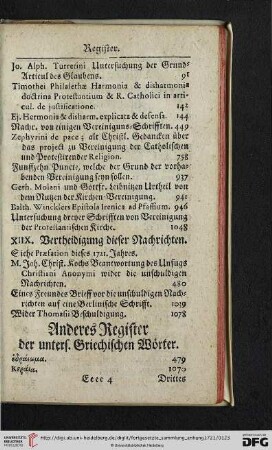 Register.
Jo. Alph. Turretini Untersuchung der Grund-
Articul des Glaubens. 91
Timothei Philalethæ Harmonia & disharmonia
doctrinæ Protestantium & R. Catholici in arti-
cul. de justificatione. 142
Ej. Hermonia & disharm. explicata & defensa 144
Nachr. von einigen Vereinigungs-Schrifften. 449
Zephyrini de pace; alt Christl. Gedancken über
das project zu Vereinigung der Catholischen
und Protestirender Religion. 758
Funffzehn Puncte, welche der Grund der vorha-
benden Vereinigung seyn sollen. 937
Gerh. Molani und Gottfr. Leibnitzen Urtheil von
dem Nutzen der Kirchen-Vereinigung. 941
Balth. Winckleri Epistola Irenica ad Pfaffium. 946
Untersuchung dreyer Schrifften von Vereinigung
der Protestantischen Kirche. 1048
XIIX. Vertheidigung dieser Nachrichten.
Siehe Præfation dieses 1721. Jahres.
M. Joh. Christ. Kochs Beantwortung des Unfugs
Christiani Anonymi wider die unschuldigen
Nachrichten. 480
Eines Freundes Brieff vor die unschuldigen Nach-
richten auf eine Berlinische Schrifft. 1019
Wider Thomasii Beschuldigung. 1078
Anderes Register
der unters. Griechischen Wörter.
479
1070
Eeee 4 Drittes
UNIVERSITÄTS-BIBLIOTHEK HEIDELBERG
© Universitätsbibliothek Heidelberg
gefördert durch die DFG